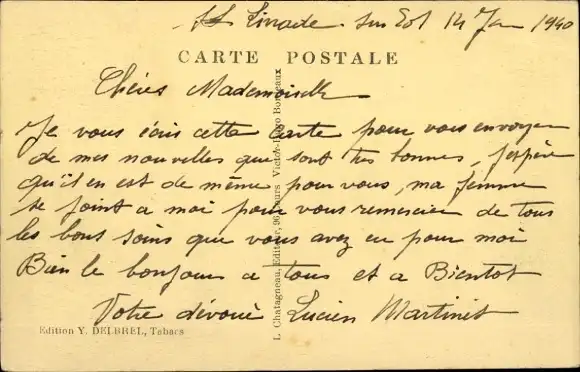 St Livrade. sur Lot 14 Jan 1940
CARTE POSTALE
Chères Mademoiselle
Je vous écris cette carte pour vous envoyer
de mes nouvelles que sont tres bonnes, j'espère
qu'il en est de même pour vous, ma femme
se joint a moi pour vous remercier de tous
les bons soins que vous avez eu pour moi
Bien le bonjour a tous et a Bientot
Votre dévoué Lucien Martinet
Edition Y. DELBREL, Tabacs
L. Chatagneau, Editeur, 90, Cours Victor-Hugo Bordeaux